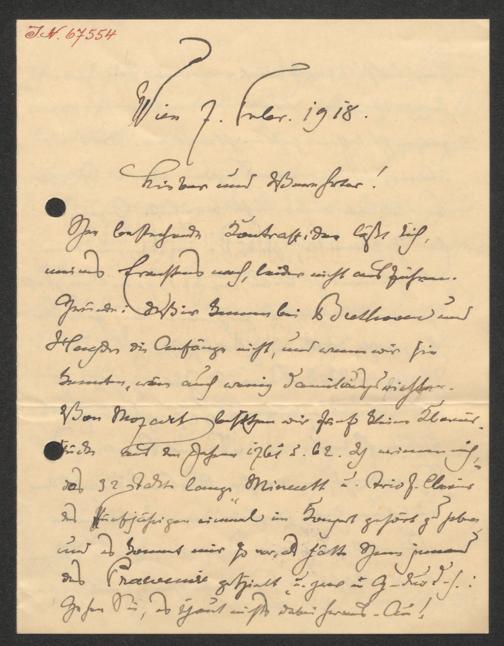 I.N. 67554
Wien 7. Febr. 1918.
Lieber und Verehrter!
Ihre bestechende Kontrast-Idee läßt sich,
meines Erachtens nach, leider nicht ausführen.
Gründe: Wir kennen bei Beethoven und
Haydn die Anfänge nicht, und wenn wir sie
kennten, wäre auch wenig damit
Von Mozart besitzen wir fünf kleine Klavier-
stücke aus den Jahren 1761 u. 62. Ich erinnere mich,
das 32 Takte lange Menuett u. Trio f. Clavier
des Fünfjährigen einmal im Konzert gehört zu haben
und es kommt mir so vor, als hätte Ihnen jemand
das gespielt u. zwar in G-dur
Sehen Sie, es schaut nichts dabei heraus.